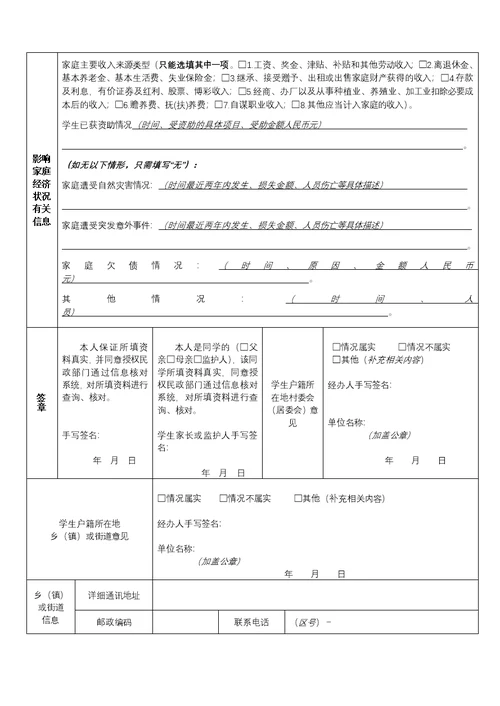 家庭主要收入来源类型（只能选填其中一项。□1.工资、奖金、津贴、补贴和其他劳动收入；□2.离退休金、
基本养老金、基本生活费、失业保险金；□3.继承、接受赠予、出租或出售家庭财产获得的收入；□4.存款
及利息，有价证券及红利、股票、博彩收入；□5.经商、办厂以及从事种植业、养殖业、加工业扣除必要成
本后的收入；□6.赡养费、抚(扶)养费；□7.自谋职业收入；□8.其他应当计入家庭的收入）。
学生已获资助情况（时间、受资助的具体项目、受助金额人民币元）
。
（如无以下情形，只需填写“无”）：
家庭遭受自然灾害情况：（时间最近两年内发生、损失金额、人员伤亡等具体描述）
。
家庭遭受突发意外事件：（时间最近两年内发生、损失金额、人员伤亡等具体描述）
。
家庭欠债情况：（时间、原因、金额人民币
元）。
其他情况：（时间、人
员）。
影响
家庭
经济
状况
有关
信息
签
章
本人保证所填资
料真实，并同意授权民
政部门通过信息核对
系统，对所填资料进行
查询、核对。
手写签名：
年 月 日
本人是同学的（□父
亲□母亲□监护人），该同
学所填资料真实，同意授
权民政部门通过信息核对
系统，对所填资料进行查
询、核对。
学生家长或监护人手写签
名：
年 月 日
学生户籍所
在地村委会
（居委会）意
见
□情况属实 □情况不属实
□其他（补充相关内容）
经办人手写签名：
单位名称：
（加盖公章）
年 月 日
学生户籍所在地
乡（镇）或街道意见
□情况属实 □情况不属实 □其他（补充相关内容）
经办人手写签名：
单位名称：
（加盖公章）
年 月 日
乡（镇）
或街道
信息
详细通讯地址
邮政编码
联系电话
（区号）－